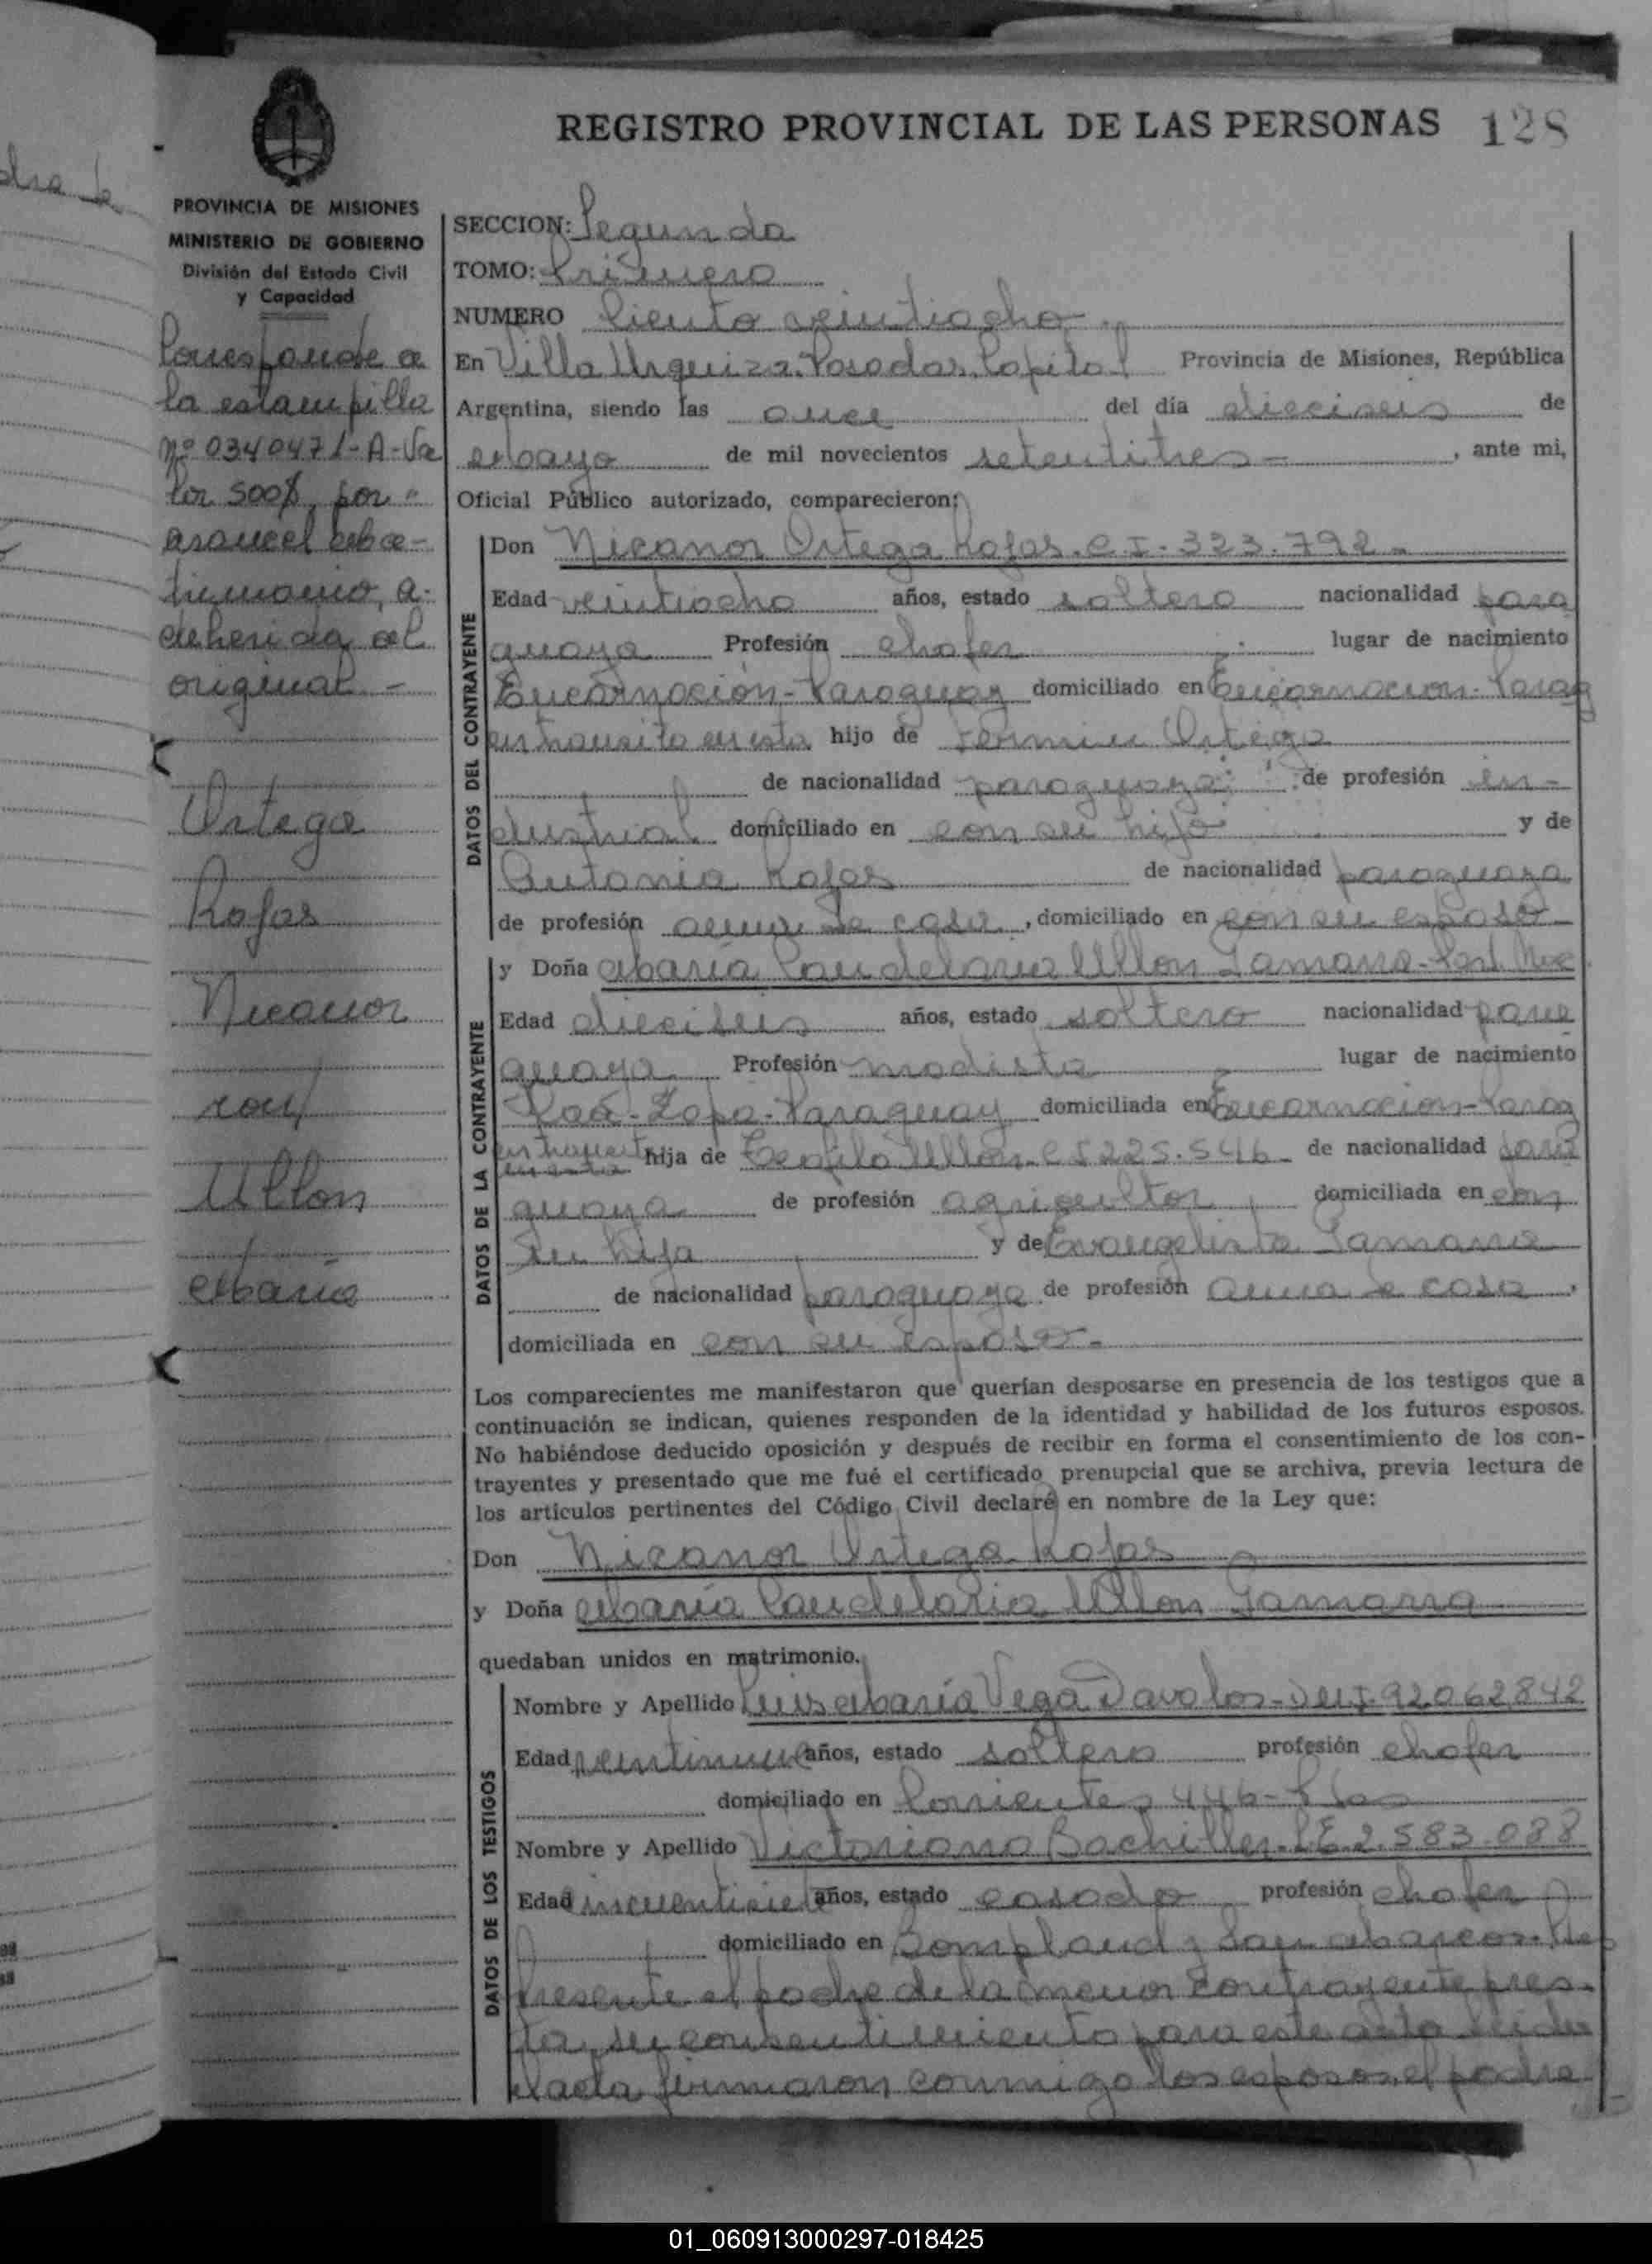 REGISTRO PROVINCIAL DE LAS PERSONAS 128
PROVINCIA DE MISIONES
MINISTERIO DE GOBIERNO
División del Estado Civil
y Capacidad
Corresponde a
la estampilla
Nº 0340471-A-Va
lor 500$ por
arancel
a-
dherida al
original -
Ortega
Rojas
Nicanor
con
Ullon
Maria
SECCION: Segunda
TOMO: Primero
NUMERO Ciento veintiocho
En Villa Urquiza. Posadas. Capital Provincia de Misiones, República
Argentina, siendo las once del día dieciseis de
Mayo de mil novecientos setentitres - , ante mi,
Oficial Público autorizado, comparecieron:
DATOS DEL CONTRAYENTE
Don Nicanor Ortega Rojas. C.I. 323.792 -
Edad veintiocho años, estado soltero nacionalidad para
guaya Profesión chofer lugar de nacimiento
Encarnación - Paraguay domiciliado en Encarnacion - Parag
en transito en esta hijo de Fermin Ortega
de nacionalidad paraguaya de profesión in-
dustrial domiciliado en con su hijo y de
Antonia Rojas de nacionalidad paraguaya
de profesión ama de casa , domiciliado en con su esposo
DATOS DE LA CONTRAYENTE
y Doña Maria Candelaria Ullon Gamarra - Part. Nac
Edad dieciseis años, estado soltera nacionalidad para
guaya Profesión modista lugar de nacimiento
Paraguay domiciliada en Encarnacion - Parag
en hija de Teofilo Ullon - C I 225.546 - de nacionalidad para
guaya de profesión agricultor domiciliada en con
su hija y de Evangelista Gamarra
de nacionalidad paraguaya de profesión ama de casa ,
domiciliada en con su esposo -
Los comparecientes me manifestaron que querían desposarse en presencia de los testigos que a
continuación se indican, quienes responden de la identidad y habilidad de los futuros esposos.
No habiéndose deducido oposición y después de recibir en forma el consentimiento de los con-
trayentes y presentado que me fué el certificado prenupcial que se archiva, previa lectura de
los artículos pertinentes del Código Civil declaré en nombre de la Ley que:
Don Nicanor Ortega Rojas
y Doña Maria Candelaria Ullon Gamarra
quedaban unidos en matrimonio.
DATOS DE LOS TESTIGOS
Nombre y Apellido Luis Maria Vega Davalos - DNI 92062842
Edad veintinueve años, estado soltero profesión chofer
domiciliado en Corrientes 446 - Pdas
Nombre y Apellido Victoriano Bachiller - L.E. 2.583.088
Edad cincuentisiete años, estado casado profesión chofer
domiciliado en Bompland y San Marcos - Pdas
Presente el padre de la menor contrayente pres-
ta su consentimiento para este acto leida
el acta firmaron conmigo los esposos, el padre
01_060913000297-018425